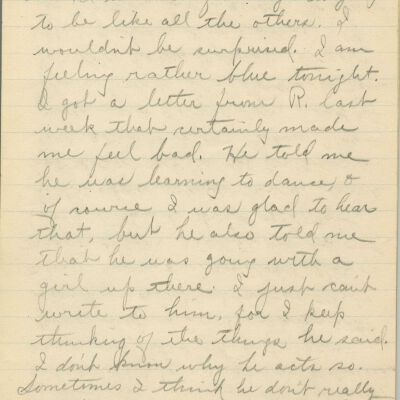 to be like all the others. I
wouldn't be surprised. I am
feeling rather blue tonight.
I got a letter from R. last
week that certainly made
me feel bad. He told me
he was learning to dance, &
of course I was glad to hear
that, but he also told me
that he was going with a
girl up there. I just can't
write to him, for I keep
thinking of the things he said.
I don't know why he acts so.
Sometimes I think he don't really